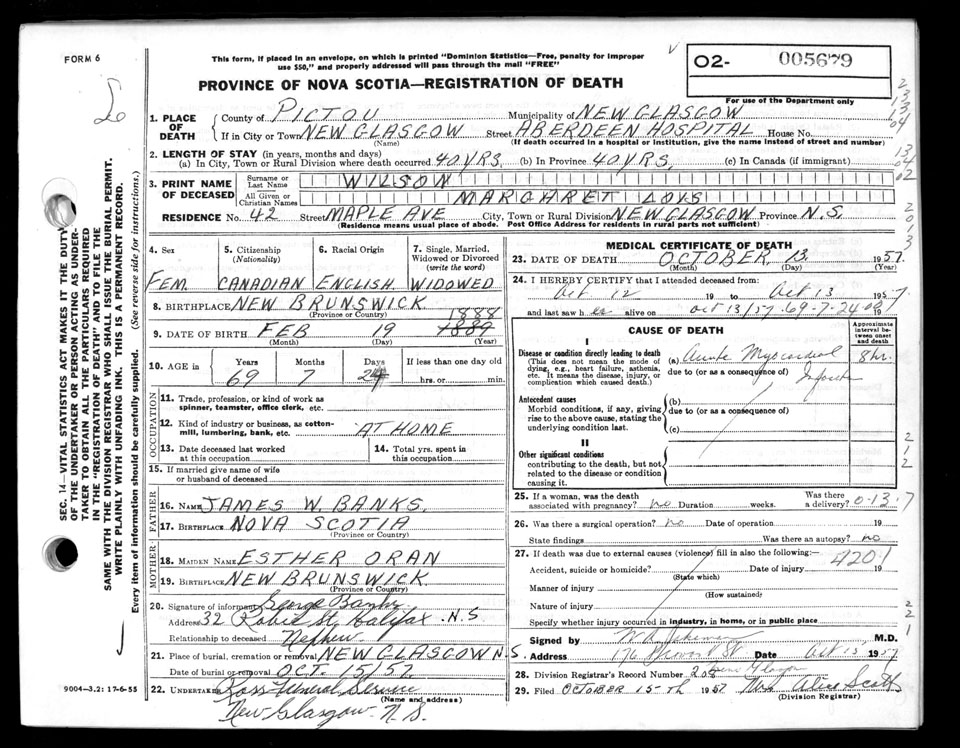 FORM 6
This form, if placed in an envelope, on which is printed "Dominion Statistics—Free, penalty for improper
use $50," and properly addressed will pass through the mail "FREE"
PROVINCE OF NOVA SCOTIA—REGISTRATION OF DEATH
02- 005679
For use of the Department only
SEC. 14—VITAL STATISTICS ACT MAKES IT THE DUTY
OF THE UNDERTAKER OR PERSON ACTING AS UNDER-
TAKER TO OBTAIN ALL THE PARTICULARS REQUIRED
IN THE "REGISTRATION OF DEATH" AND TO FILE THE
SAME WITH THE DIVISION REGISTRAR WHO SHALL ISSUE THE BURIAL PERMIT.
WRITE PLAINLY WITH UNFADING INK. THIS IS A PERMANENT RECORD.
Every item of information should be carefully supplied. (See reverse side for instructions.)
1. PLACE OF DEATH County of PICTOU Municipality of NEW GLASGOW
If in City or Town NEW GLASGOW Street ABERDEEN HOSPITAL House No.
(Name) (If death occurred in a hospital or institution, give the name instead of street and number)
2. LENGTH OF STAY (in years, months and days)
(a) In City, Town or Rural Division where death occurred 40 YRS. (b) In Province 40 YRS. (c) In Canada (if immigrant)
3. PRINT NAME OF DECEASED Surname or Last Name WILSON
All Given or Christian Names MARGHRET LOVS
RESIDENCE No. 42 Street MAPLE AVE City, Town or Rural Division NEW GLASGOW Province N.S.
(Residence means usual place of abode. Post Office Address for residents in rural parts not sufficient)
4. Sex 5. Citizenship (Nationality) 6. Racial Origin 7. Single, Married, Widowed or Divorced (write the word)
FEM. CANADIAN ENGLISH. WIDOWED
8. BIRTHPLACE NEW BRUNSWICK
(Province or Country)
1888
9. DATE OF BIRTH FEB 19 1889
(Month) (Day) (Year)
10. AGE in Years Months Days If less than one day old
69 7 24 hrs. or min.
OCCUPATION
11. Trade, profession, or kind of work as
spinner, teamster, office clerk, etc.
12. Kind of industry or business, as cotton-
mill, lumbering, bank, etc. AT HOME
13. Date deceased last worked at this occupation 14. Total yrs. spent in this occupation
15. If married give name of wife
or husband of deceased
FATHER
16. NAME JAMES W. BANKS.
17. BIRTHPLACE NOVA SCOTIA
(Province or Country)
MOTHER
18. MAIDEN NAME ESTHER ORAN
19. BIRTHPLACE NEW BRUNSWICK
(Province or Country)
20. Signature of informant George Banks
Address 32 Robie St. Halifax .N.S
Relationship to deceased Nephew
21. Place of burial, cremation or removal NEW GLASGOW N.S.
Date of burial or removal OCT. 15/57.
22. UNDERTAKER Ross Funeral Service
(Name and address)
New Glasgow N.S.
9004—3.2: 17-6-55
MEDICAL CERTIFICATE OF DEATH
23. DATE OF DEATH OCTOBER, 13. 1957.
(Month) (Day) (Year)
24. I HEREBY CERTIFY that I attended deceased from:
Oct 12 19 to Oct 13 1957
and last saw her alive on Oct 13/57 69-7-24 19
CAUSE OF DEATH
Approximate interval between onset and death
I
Disease or condition directly leading to death
(This does not mean the mode of
dying, e.g., heart failure, asthenia,
etc. It means the disease, injury, or
complication which caused death.)
(a) Acute Myocardial 8 hr.
due to (or as a consequence of) Infarction
Antecedent causes
Morbid conditions, if any, giving
rise to the above cause, stating the
underlying condition last.
(b)
due to (or as a consequence of)
(c)
II
Other significant conditions
contributing to the death, but not
related to the disease or condition
causing it.
25. If a woman, was the death associated with pregnancy? no Duration weeks. Was there a delivery? 0-13.7
26. Was there a surgical operation? no Date of operation 19
State findings Was there an autopsy? no
27. If death was due to external causes (violence) fill in also the following:
4201
Accident, suicide or homicide? Date of injury 19
(State which)
Manner of injury
(How sustained)
Nature of injury
Specify whether injury occurred in industry, in home, or in public place
Signed by M.D.
Address 176 St. Date Oct 15 1957
28. Division Registrar's Record Number 208
29. Filed OCTOBER 15TH 1957 Mrs Alice Scott
(Division Registrar)